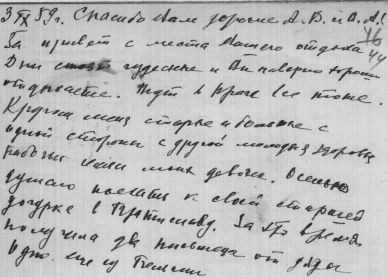 3/IX 59 г. Спасибо Вам дорогие А. В. и А. А!
За привет с места Вашего отдыха
Дни стоят чудесные и Вы наверно хорошо
отдыхаете. Тут в Праге все тоже.
Кругом меня старые и больные с
одной стороны с другой молодая здоровая
девочек. Осенью
думаю поехать к своей старшей
дочурке в Братиславу. За это время
получила два письмеца от дяди
и одно еще из